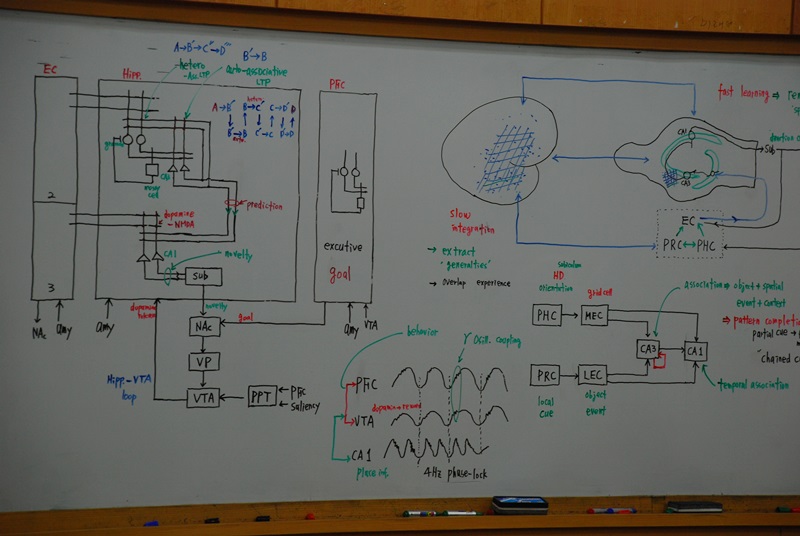 A→B'→C''→D'''
B'→B
EC
Hipp.
hetero
-Ass. LTP
auto-associative
LTP
PFC
A→B' B→C' C→D' D
hetero
B'→B C'→C D'→D
granule
mossy
cell
CA3
2
prediction
dopamine
-NMDA
CA1
novelty
Sub
3
excutive
goal
NAc
amy
amy
dopamine
novelty
goal
amy
VTA
NAc
VP
Hipp.-VTA
loop
VTA
PPT
PFC
Saliency
behavior
γ Oscil. coupling
PFC
dopamine→reward
VTA
CA1
place inf.
4Hz phase-lock
slow
integration
→ extract
"generalities"
→ overlap experience
fast learning ⇒
CA1
CA3
Sub
EC
PRC↔PHC
subiculum
HD
orientation
grid cell
PHC
MEC
association ⇒ object + spatial
event + context
⇒ pattern completion
partial cue →
CA3
CA1
"chained
temporal association
PRC
LEC
local
cue
object
event